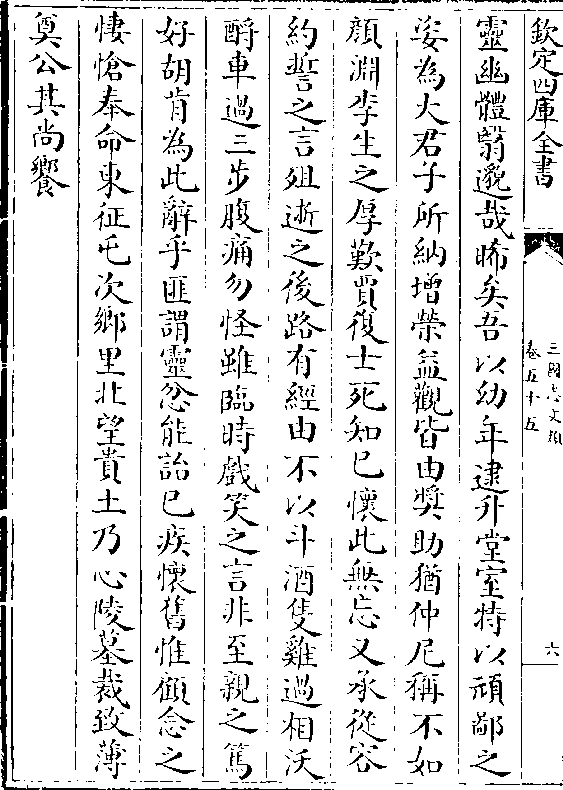 欽定四庫全書
三國志文類
卷五十五
六
靈幽體翳邈哉晞矣吾以幼年逮升堂室特以頑鄙之
姿為大君子所納增榮益觀皆由奬助猶仲尼稱不如
顔淵李生之厚歎賈復士死知已懷此無忘又承從容
約誓之言殂逝之後路有經由不以斗酒隻雞過相沃
酹車過三步腹痛勿怪雖臨時戲笑之言非至親之篤
好胡肯為此辭乎匪謂靈忿能詒已疾懷舊惟顧念之
悽愴奉命東征屯次鄉里北望貴土乃心陵墓裁致薄
奠公其尚饗